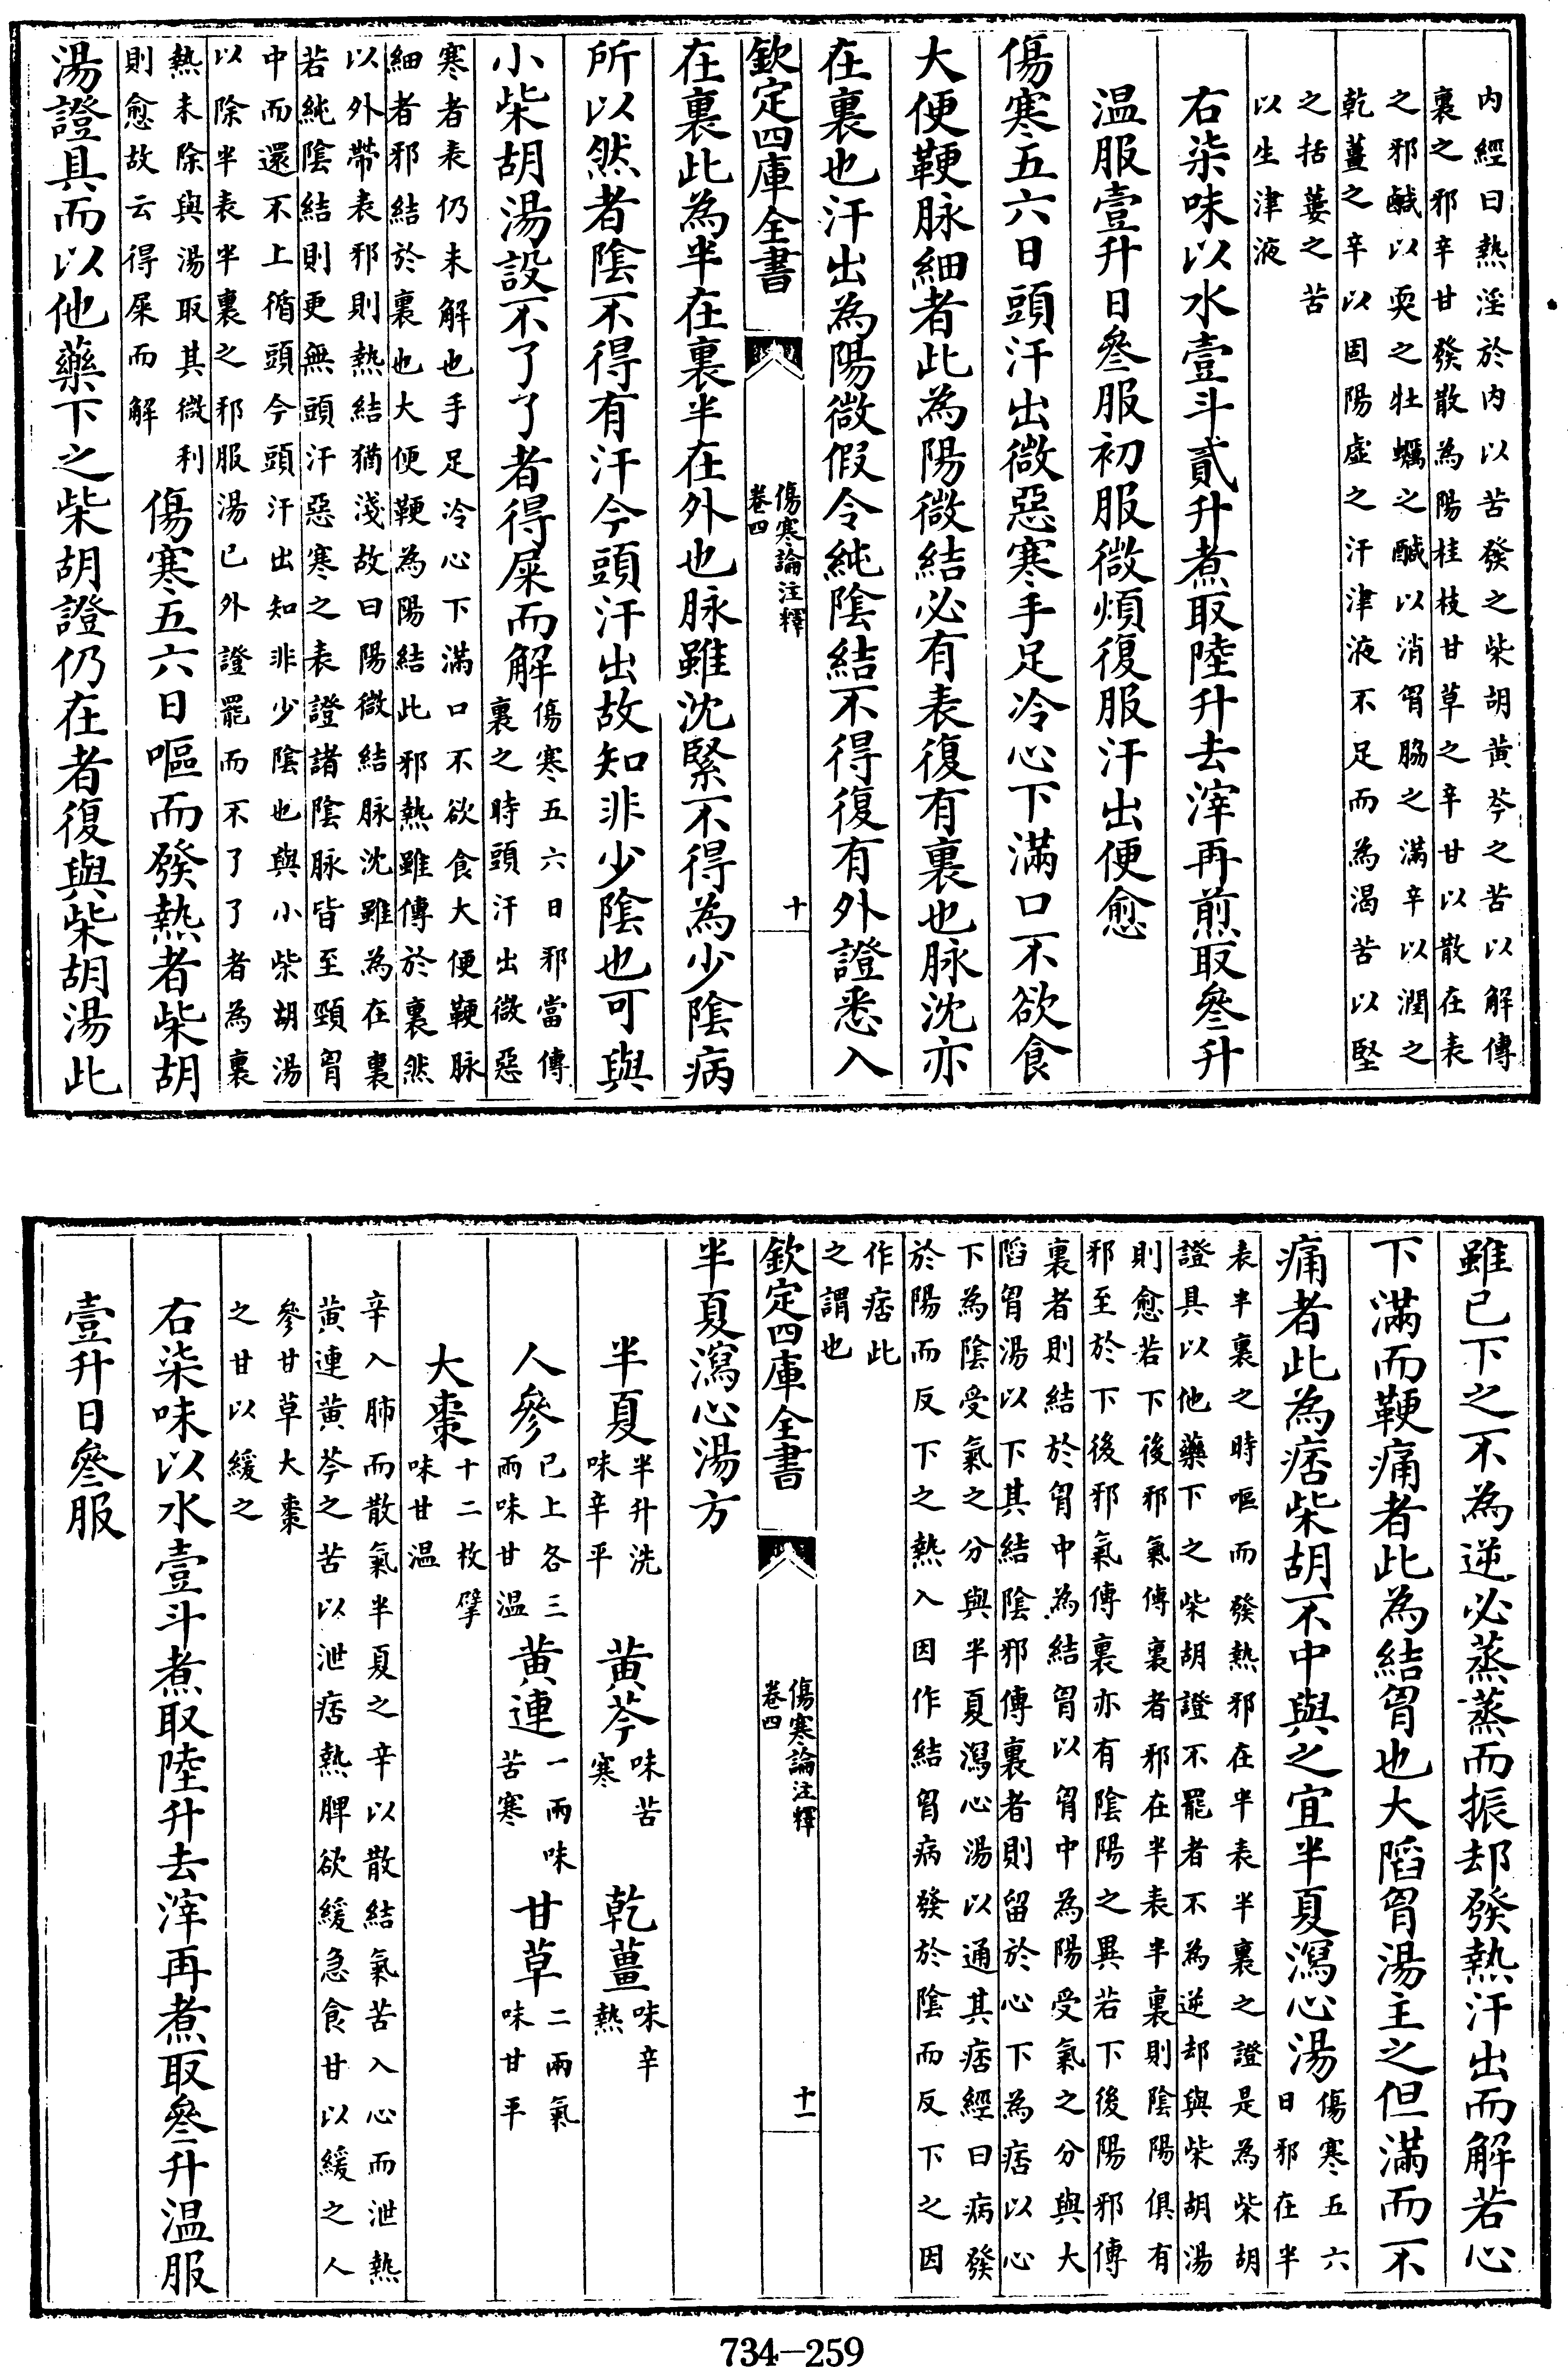 内經曰熱淫於内以苦發之柴胡黄芩之苦以解傳
裏之邪辛甘發散為陽桂枝甘草之辛甘以散在表
之邪鹹以耎之牡蠣之鹹以消胷脇之滿辛以潤之
乾薑之辛以固陽虛之汗津液不足而為渴苦以堅
之括蔞之苦
以生津液
右柒味以水壹斗貳升煮取陸升去滓再煎取叄升
温服壹升日叄服初服微煩復服汗出便愈
傷寒五六日頭汗出微惡寒手足冷心下滿口不欲食
大便鞕脉細者此為陽微結必有表復有裏也脉沈亦
在裏也汗出為陽微假令純陰結不得復有外證悉入
欽定四庫全書
傷寒論注釋
卷四
十
在裏此為半在裏半在外也脉雖沈緊不得為少陰病
所以然者陰不得有汗今頭汗出故知非少陰也可與
小柴胡湯設不了了者得屎而解
傷寒五六日邪當傳
裏之時頭汗出微惡
寒者表仍未解也手足冷心下滿口不欲食大便鞕脉
細者邪結於裏也大便鞕為陽結此邪熱雖傳於裏然
以外帶表邪則熱結猶淺故曰陽微結脉沈雖為在裏
若純陰結則更無頭汗惡寒之表證諸陰脉皆至頸胷
中而還不上循頭今頭汗出知非少陰也與小柴胡湯
以除半表半裏之邪服湯已外證罷而不了了者為裏
熱未除與湯取其微利
則愈故云得屎而解
傷寒五六日嘔而發熱者柴胡
湯證具而以他藥下之柴胡證仍在者復與柴胡湯此
雖已下之不為逆必蒸蒸而振却發熱汗出而解若心
下滿而鞕痛者此為結胷也大䧟胷湯主之但滿而不
痛者此為痞柴胡不中與之宜半夏瀉心湯
傷寒五六
日邪在半
表半裏之時嘔而發熱邪在半表半裏之證是為柴胡
證具以他藥下之柴胡證不罷者不為逆却與柴胡湯
則愈若下後邪氣傳裏者邪在半表半裏則陰陽俱有
邪至於下後邪氣傳裏亦有陰陽之異若下後陽邪傳
裏者則結於胷中為結胷以胷中為陽受氣之分與大
䧟胷湯以下其結陰邪傳裏者則留於心下為痞以心
下為陰受氣之分與半夏瀉心湯以通其痞經曰病發
於陽而反下之熱入因作結胷病發於陰而反下之因
作痞此
之謂也
欽定四庫全書
傷寒論注釋
卷四
十一
半夏瀉心湯方
半夏
半升洗
味辛平
黄芩
味苦
寒
乾薑
味辛
熱
人參
已上各三
兩味甘温
黄連
一兩味
苦寒
甘草
二兩氣
味甘平
大棗
十二枚擘
味甘温
辛入肺而散氣半夏之辛以散結氣苦入心而泄熱
黄連黄芩之苦以泄痞熱脾欲緩急食甘以緩之人
參甘草大棗
之甘以緩之
右柒味以水壹斗煮取陸升去滓再煮取叄升温服
壹升日叄服
734—259